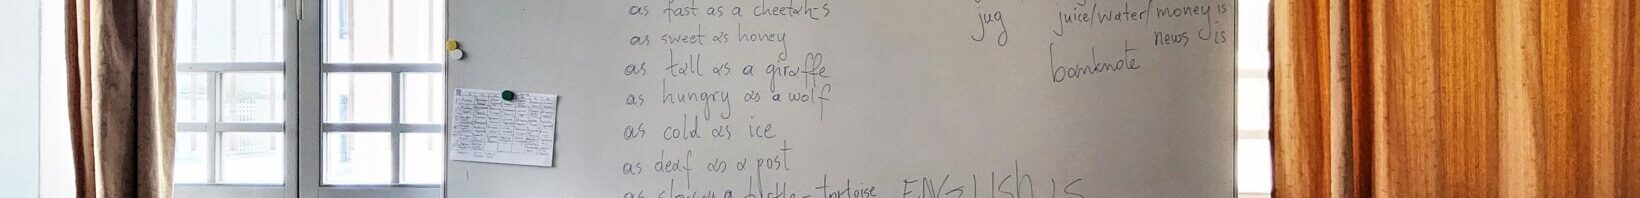 as fast as a cheetah
as sweet as honey
as tall as a giraffe
as hungry as a wolf
as cold as ice
as deaf as a post
tortoise
ENGLISH IS
jug
juice/water/money is
news is
banknote